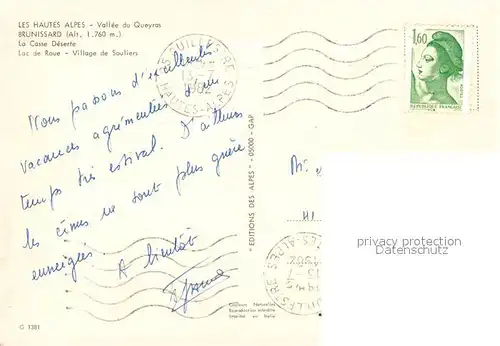 LES HAUTES ALPES - Vallée du Queyras
BRUNISSARD (Alt. 1.760 m.)
La Casse Déserte
Lac de Roue - Village de Souliers
HAUTES-ALPES
1982
1,60
RÉPUBLIQUE FRANÇAISE
Nous passons d'excellentes
vacances agrémentées d'un
temps très estival. D'ailleurs
les cimes ne sont plus guère
enneigées A bientôt
"EDITIONS DES ALPES" - 05000 - GAP
privacy protection
Datenschutz
Couleurs Naturelles
Reproduction interdite
Imprimé en Italie
G 1381